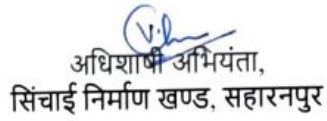 अधिशाषी अभियंता,
सिंचाई निर्माण खण्ड, सहारनपुर